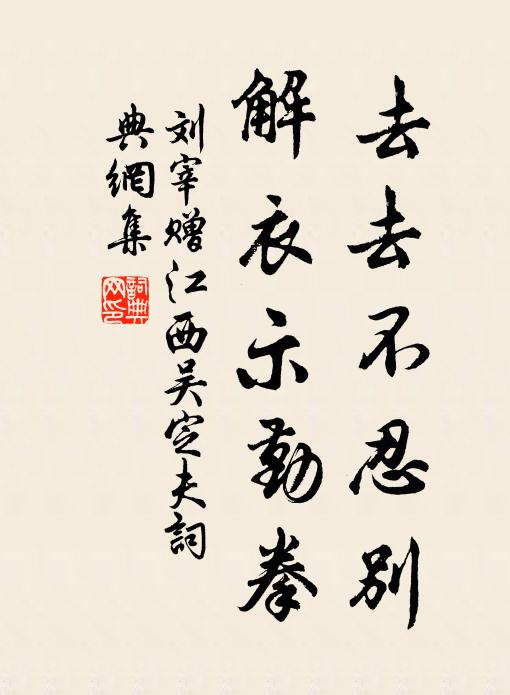 去去不忍别
解衣示勤拳
刘宰赠江西吴定夫詞
典網集
詞典网印